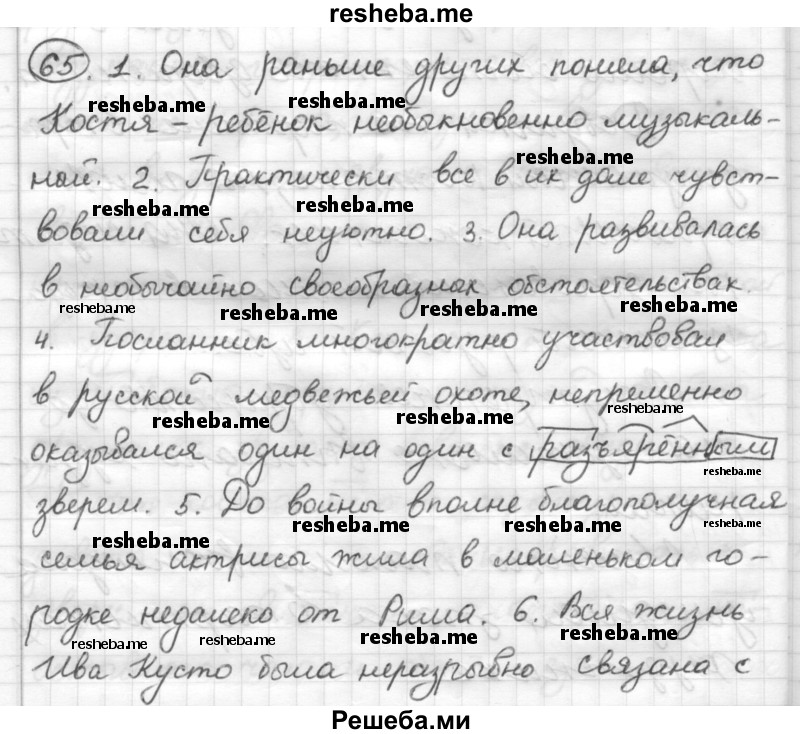 resheba.me
65. 1. Она раньше других поняла, что
resheba.me resheba.me
Костя – ребёнок необыкновенно музыкаль-
resheba.me
ный. 2. Практически все в их доме чувст-
resheba.me resheba.me
вовали себя неуютно. 3. Она развивалась
в необычайно своеобразных обстоятельствах.
resheba.me resheba.me resheba.me resheba.me
4. Посланник многократно участвовал
в русской медвежьей охоте, непременно
resheba.me resheba.me
оказывался один на один с разъярённым
resheba.me
зверем. 5. До войны вполне благополучная
resheba.me resheba.me resheba.me resheba.me
семья актрисы жила в маленьком го-
родке недалеко от Рима. 6. Вся жизнь
resheba.me resheba.me resheba.me resheba.me
Ива Кусто была неразрывно связана с
Решеба.ми